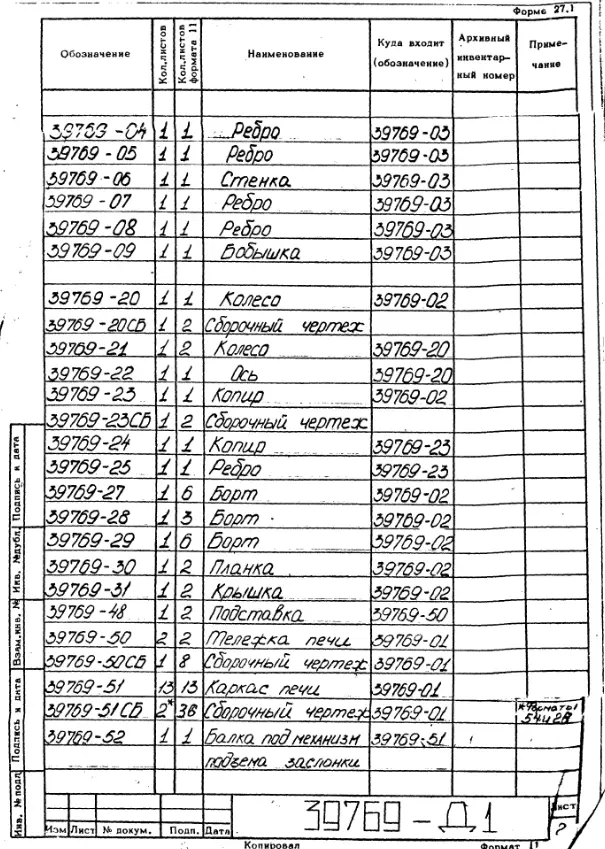 Форма 27.1
Обозначение Кол.листов Кол.листов формата 11 Наименование Куда входит (обозначение) Архивный инвентар-ный номер Приме-чание
39769-04 1 1 Ребро 39769-03
39769-05 1 1 Ребро 39769-03
39769-06 1 1 Стенка 39769-03
39769-07 1 1 Ребро 39769-03
39769-08 1 1 Ребро 39769-03
39769-09 1 1 Бобышка 39769-03
39769-20 1 1 Колесо 39769-02
39769-20СБ 1 2 Сборочный чертеж
39769-21 1 2 Колесо 39769-20
39769-22 1 1 Ось 39769-20
39769-23 1 1 Копир 39769-02
39769-23СБ 1 2 Сборочный чертеж
39769-24 1 1 Копир 39769-23
39769-25 1 1 Ребро 39769-23
39769-27 1 6 Борт 39769-02
39769-28 1 3 Борт 39769-02
39769-29 1 6 Борт 39769-02
39769-30 1 2 Планка 39769-02
39769-31 1 2 Крышка 39769-02
39769-48 1 2 Подставка 39769-50
39769-50 2 2 Тележка печи 39769-01
39769-50СБ 1 8 Сборочный чертеж 39769-01
39769-51 13 13 Каркас печи 39769-01
39769-51СБ 2* 36 Сборочный чертеж 39769-01 *Форматы
39769-52 1 1 Балка под механизм 39769-51
подъема заслонки
Подпись и дата
Инв. №дубл.
Взам.инв. №
Подпись и дата
Инв. № подл.
Изм Лист № докум. Подп. Дата
39769-Д1
Лист
2
Копировал Формат 11